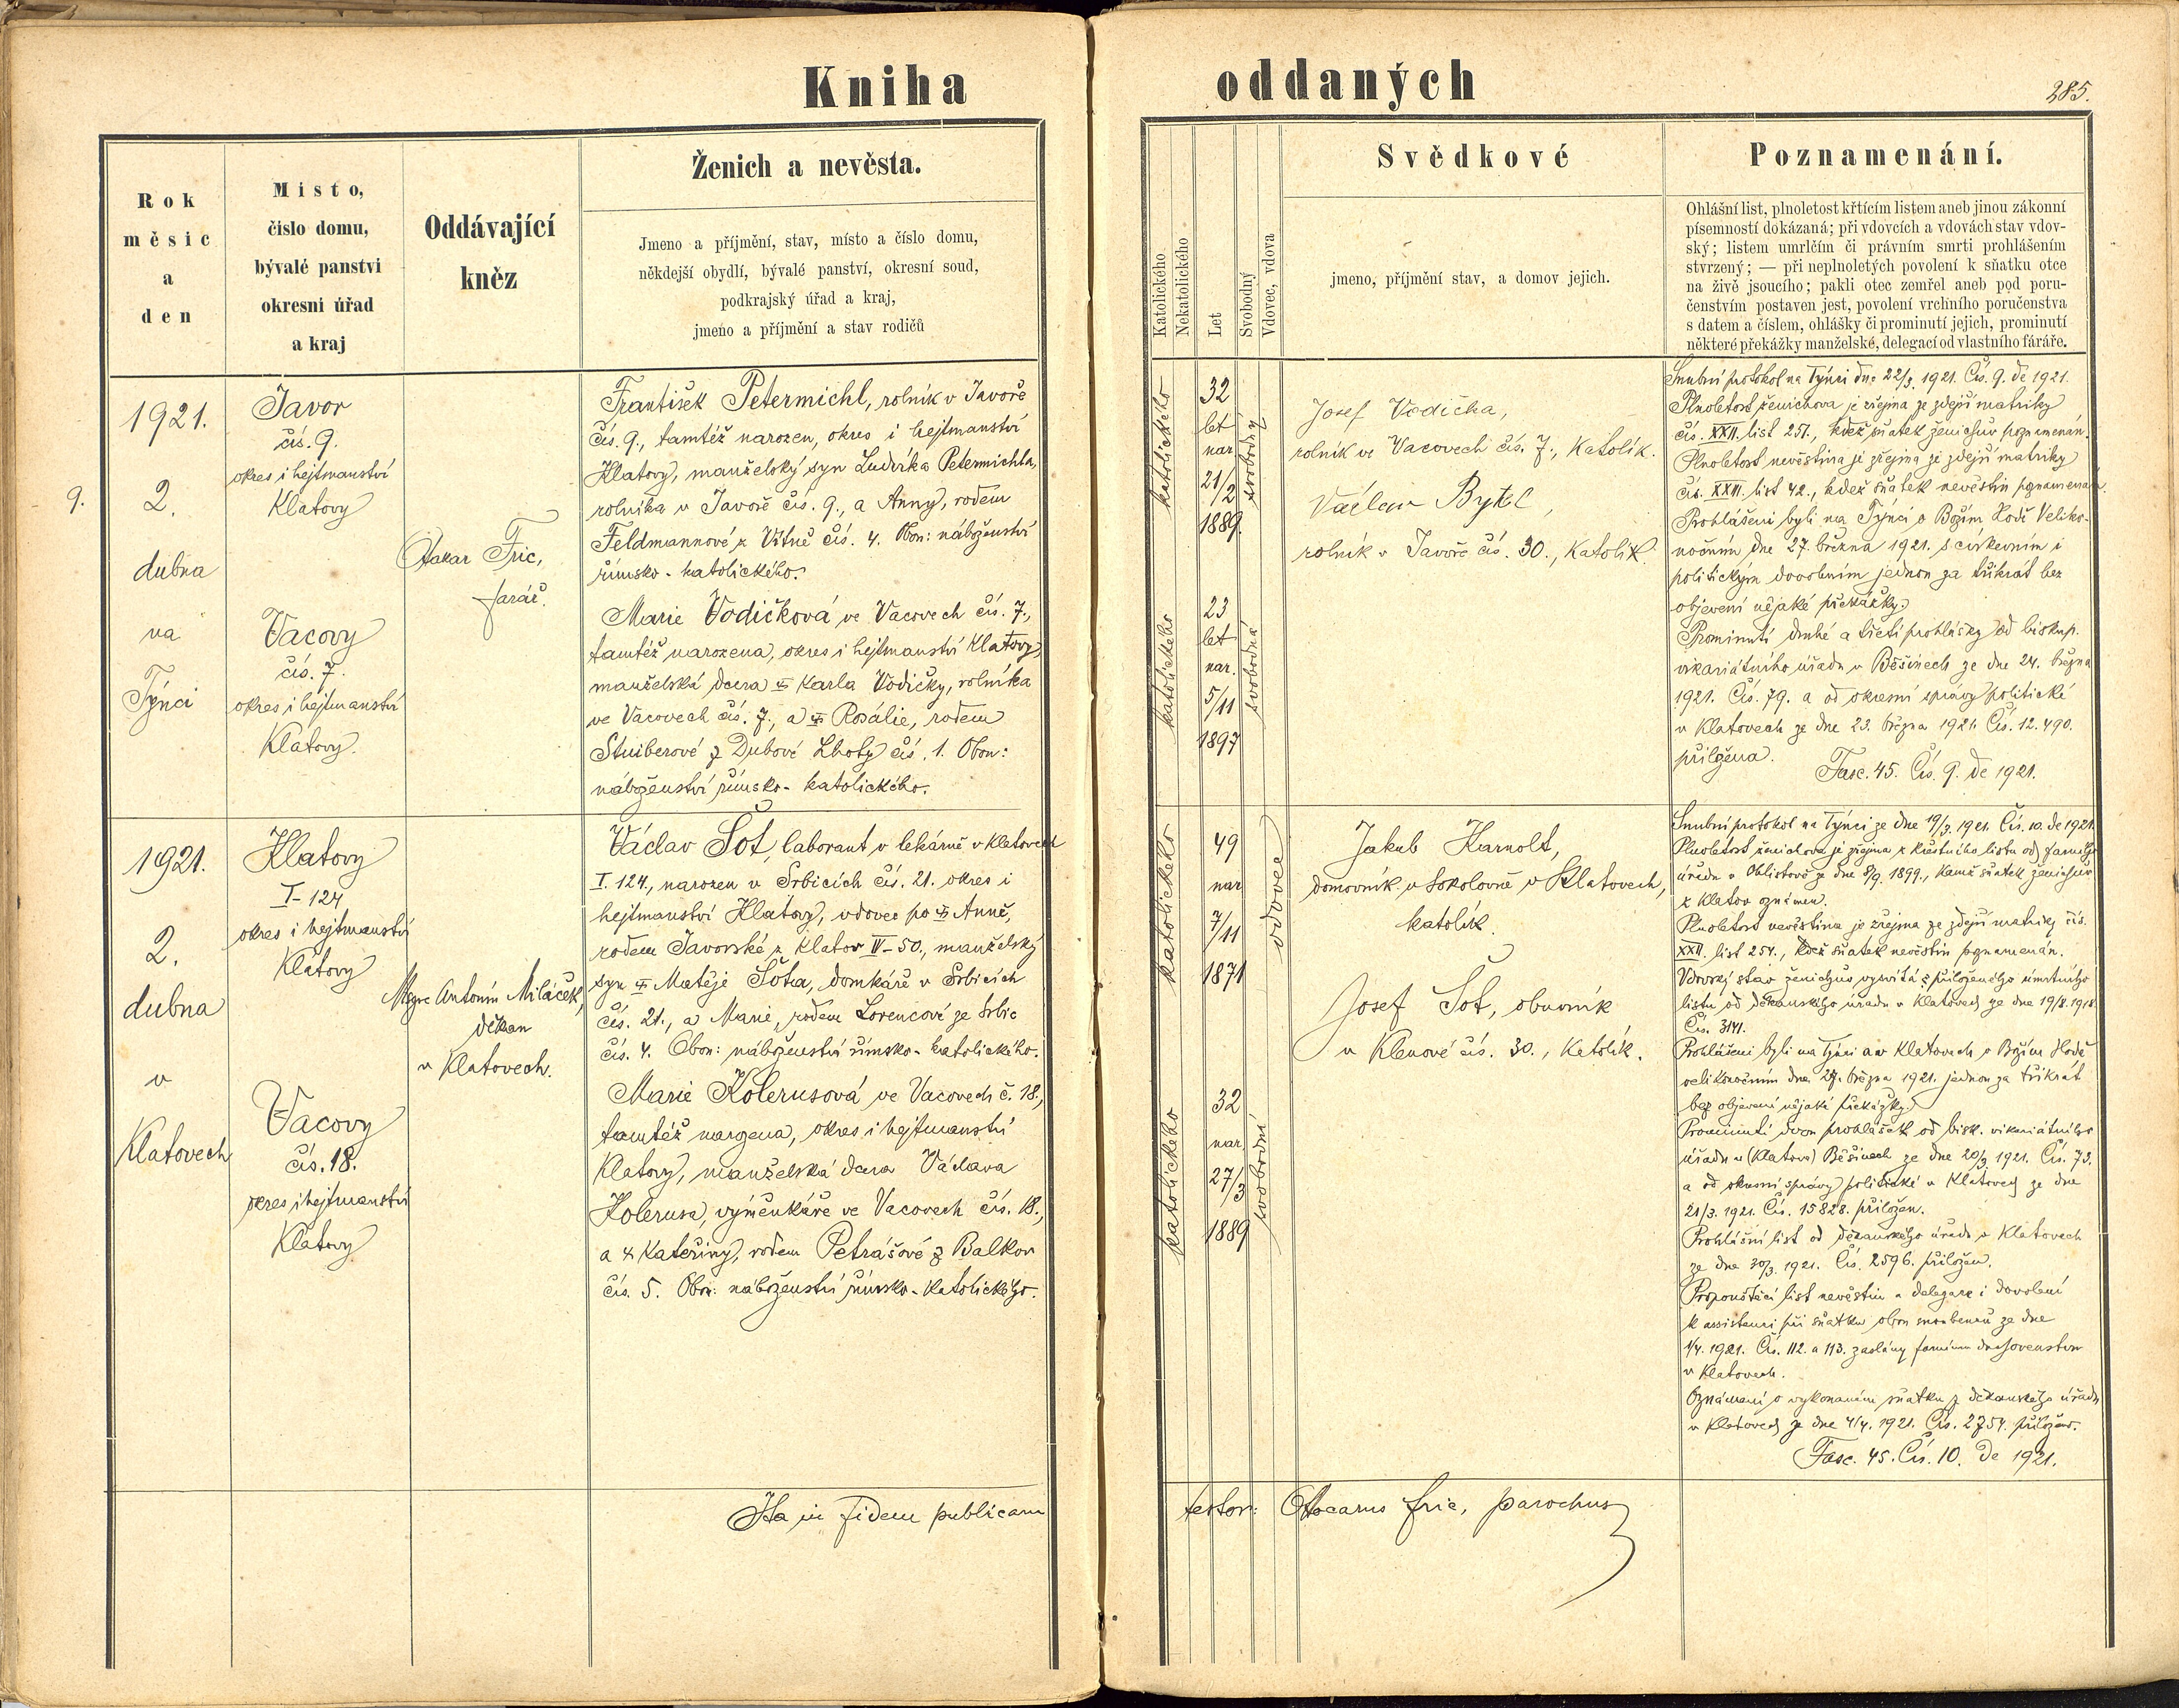 Kniha
oddaných
285.
Rok
měsíc
a
den
Místo,
číslo domu,
bývalé panství
okresní úřad
a kraj
Oddávající
kněz
Ženich a nevěsta.
Jmeno a příjmění, stav, místo a číslo domu,
někdejší obydlí, bývalé panství, okresní soud,
podkrajský úřad a kraj,
jmeno a příjmění a stav rodičů
Katolického
Nekatolického
Let
Svobodný
Vdovec, vdova
Svědkové
jmeno, příjmění stav, a domov jejich.
Poznamenání.
Ohlášní list, plnoletost křtícím listem aneb jinou zákonní
písemností dokázaná; při vdovcích a vdovách stav vdov-
ský; listem umrlčím či právním smrti prohlášením
stvrzený; — při neplnoletých povolení k sňatku otce
na živě jsoucího; pakli otec zemřel aneb pod poru-
čenstvím postaven jest, povolení vrchního poručenstva
s datem a číslem, ohlášky či prominutí jejich, prominutí
některé překážky manželské, delegací od vlastního fáráře.
9.
1921.
2.
dubna
na
Týnci
Javor
čís. 9.
okres i hejtmanství
Klatovy
Vacovy
čís. 7.
okres i hejtmanství
Klatovy.
Otakar Fric,
farář.
František Petermichl, rolník v Javoře
čís. 9., tamtéž narozen, okres i hejtmanství
Klatovy, manželský syn Ludvíka Petermichla,
rolníka v Javoře čís. 9., a Anny, rodem
Feldmannové z Vítně čís. 4. Obou: náboženství
římsko-katolického.
Marie Vodičková ve Vacovech čís. 7.,
tamtéž narozena, okres i hejtmanství Klatovy,
manželská dcera Karla Vodičky, rolníka
ve Vacovech čís. 7., a Rosálie, rodem
Stuiberové z Dubové Lhoty čís. 1. Obou:
náboženství římsko-katolického.
katolického
32
let
nar.
21/2
1889.
svobodný
katolického
23
let
nar.
5/11
1897
svobodná
Josef Vodička,
rolník ve Vacovech čís. 7., katolík.
Václav Bytel,
rolník v Javoře čís. 30., katolík.
Snubní protokol na Týnci dne 22/3. 1921. Čís. 9. de 1921.
Plnoletost ženichova je zřejma ze zdejší matriky
čís. XXII. list 251., kdež sňatek ženichův poznamenán.
Plnoletost nevěstina je zřejma ze zdejší matriky
čís. XXII. list 42., kdež sňatek nevěstin poznamenán.
Prohlášeni byli na Týnci o Božím Hodě Veliko-
nočním dne 27. března 1921. s církevním i
politickým dovolením jednou za třikrát bez
objevení nějaké překážky.
Prominutí druhé a třetí prohlášky od biskup.
vikariátního úřadu v Běšinech ze dne 24. března
1921. Čís. 79. a od okresní správy politické
v Klatovech ze dne 23. března 1921. Čís. 12.490.
přiložena.
Fasc. 45. Čís. 9. de 1921.
1921.
2.
dubna
v
Klatovech
Klatovy
I-124
okres i hejtmanství
Klatovy
Vacovy
čís. 18.
okres i hejtmanství
Klatovy
Msgre Antonín Miláček,
děkan
v Klatovech.
Václav Šot, laborant v lekárně v Klatovech
I. 124., narozen v Srbicích čís. 21. okres i
hejtmanství Klatovy, vdovec po Anně,
rodem Javorské z Klatov IV-50., manželský
syn Matěje Šota, domkáře v Srbicích
čís. 21., a Marie, rodem Lorencové ze Srbic
čís. 4. Obou: náboženství římsko-katolického.
Marie Kolerusová ve Vacovech č. 18.,
tamtéž narozena, okres i hejtmanství
Klatovy, manželská dcera Václava
Kolerusa, výměnkáře ve Vacovech čís. 18.,
a Kateřiny, rodem Petrášové z Balkov
čís. 5. Obou: náboženství římsko-katolického.
katolického
49
nar
7/11
1871
vdovec
katolického
32
nar
27/3
1889
svobodná
Jakub Karnolt,
domovník v Sokolovně v Klatovech,
katolík.
Josef Šot, obuvník
v Klenové čís. 30., katolík.
Snubní protokol na Týnci ze dne 19/3. 1921. Čís. 10. de 1921.
Plnoletost ženichova je zřejma z křestního listu od farního
úřadu v ze dne 8/9. 1899., kamž sňatek ženichův
z Klatov oznámen.
Plnoletost nevěstina je zřejma ze zdejší matriky čís.
XXII. list 254., kdež sňatek nevěstin poznamenán.
Vdovský stav ženichův vysvítá z přiloženého úmrtního
listu od děkanského úřadu v Klatovech ze dne 19/8. 1918
Čís. 3141.
Prohlášeni byli na Týnci a v Klatovech o Božím Hodě
velikonočním dne 27. března 1921. jednou za třikrát
bez objevení nějaké překážky.
Prominutí dvou prohlášek od bisk. vikariátního
úřadu v (Klatov) Běšinech ze dne 20/3. 1921. Čís. 73.
a od okresní správy politické v Klatovech ze dne
21/3. 1921. Čís. 15828. přiložen.
Prohlášní list od děkanského úřadu v Klatovech
ze dne 30/3. 1921. Čís. 2596. přiložen.
Propouštěcí list nevěstin a delegace i dovolení
k assistenci při sňatku obou snoubenců ze dne
1/4. 1921. Čís. 112. a 113. zaslány farnímu duchovenstvu
v Klatovech.
Oznámení o vykonaném sňatku z děkanského úřadu
v Klatovech ze dne 4/4. 1921. Čís. 2754. přiloženo.
Fasc. 45. Čís. 10. de 1921.
Ita in fidem publicam
testor: Ottocarus Fric, parochus